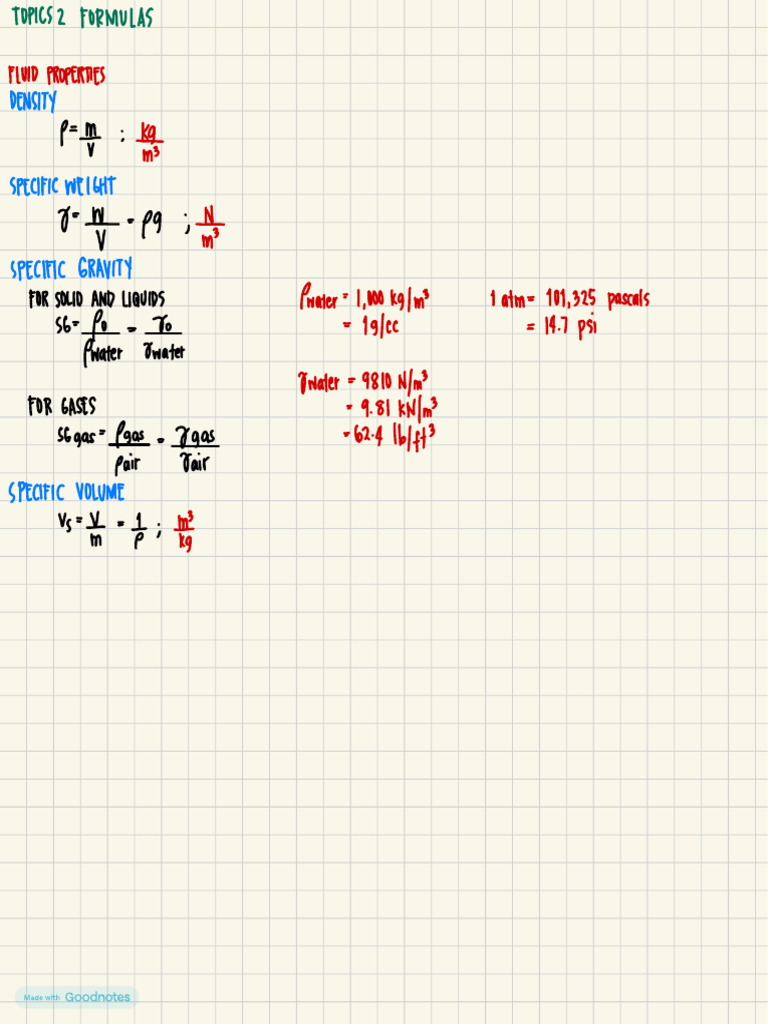 TOPICS 2 FORMULAS
FLUID PROPERTIES
DENSITY
ρ = m/V ; kg/m³
SPECIFIC WEIGHT
γ = W/V = ρg ; N/m³
SPECIFIC GRAVITY
FOR SOLID AND LIQUIDS
SG = ρo/ρwater = γo/γwater
ρwater = 1,000 kg/m³
= 1g/cc
1 atm = 101,325 pascals
= 14.7 psi
γwater = 9810 N/m³
= 9.81 kN/m³
= 62.4 lb/ft³
FOR GASES
SG gas = ρgas/ρair = γgas/γair
SPECIFIC VOLUME
Vs = V/m = 1/ρ ; m³/kg
Made with Goodnotes